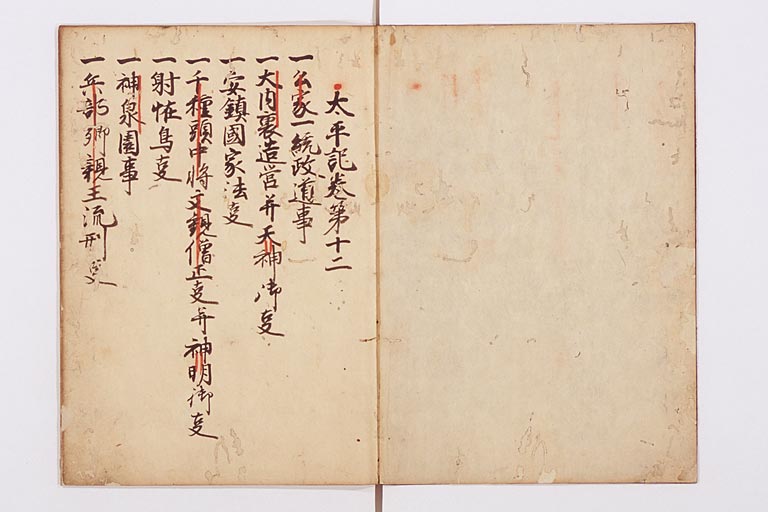 太平記巻第十二
一公家一統政道事
一大内裏造営并天神御叓
一安鎮國家法叓
一千種頭中将文観僧正叓并神明御叓
一射怪鳥叓
一神泉園事
一兵部卿親王流刑叓